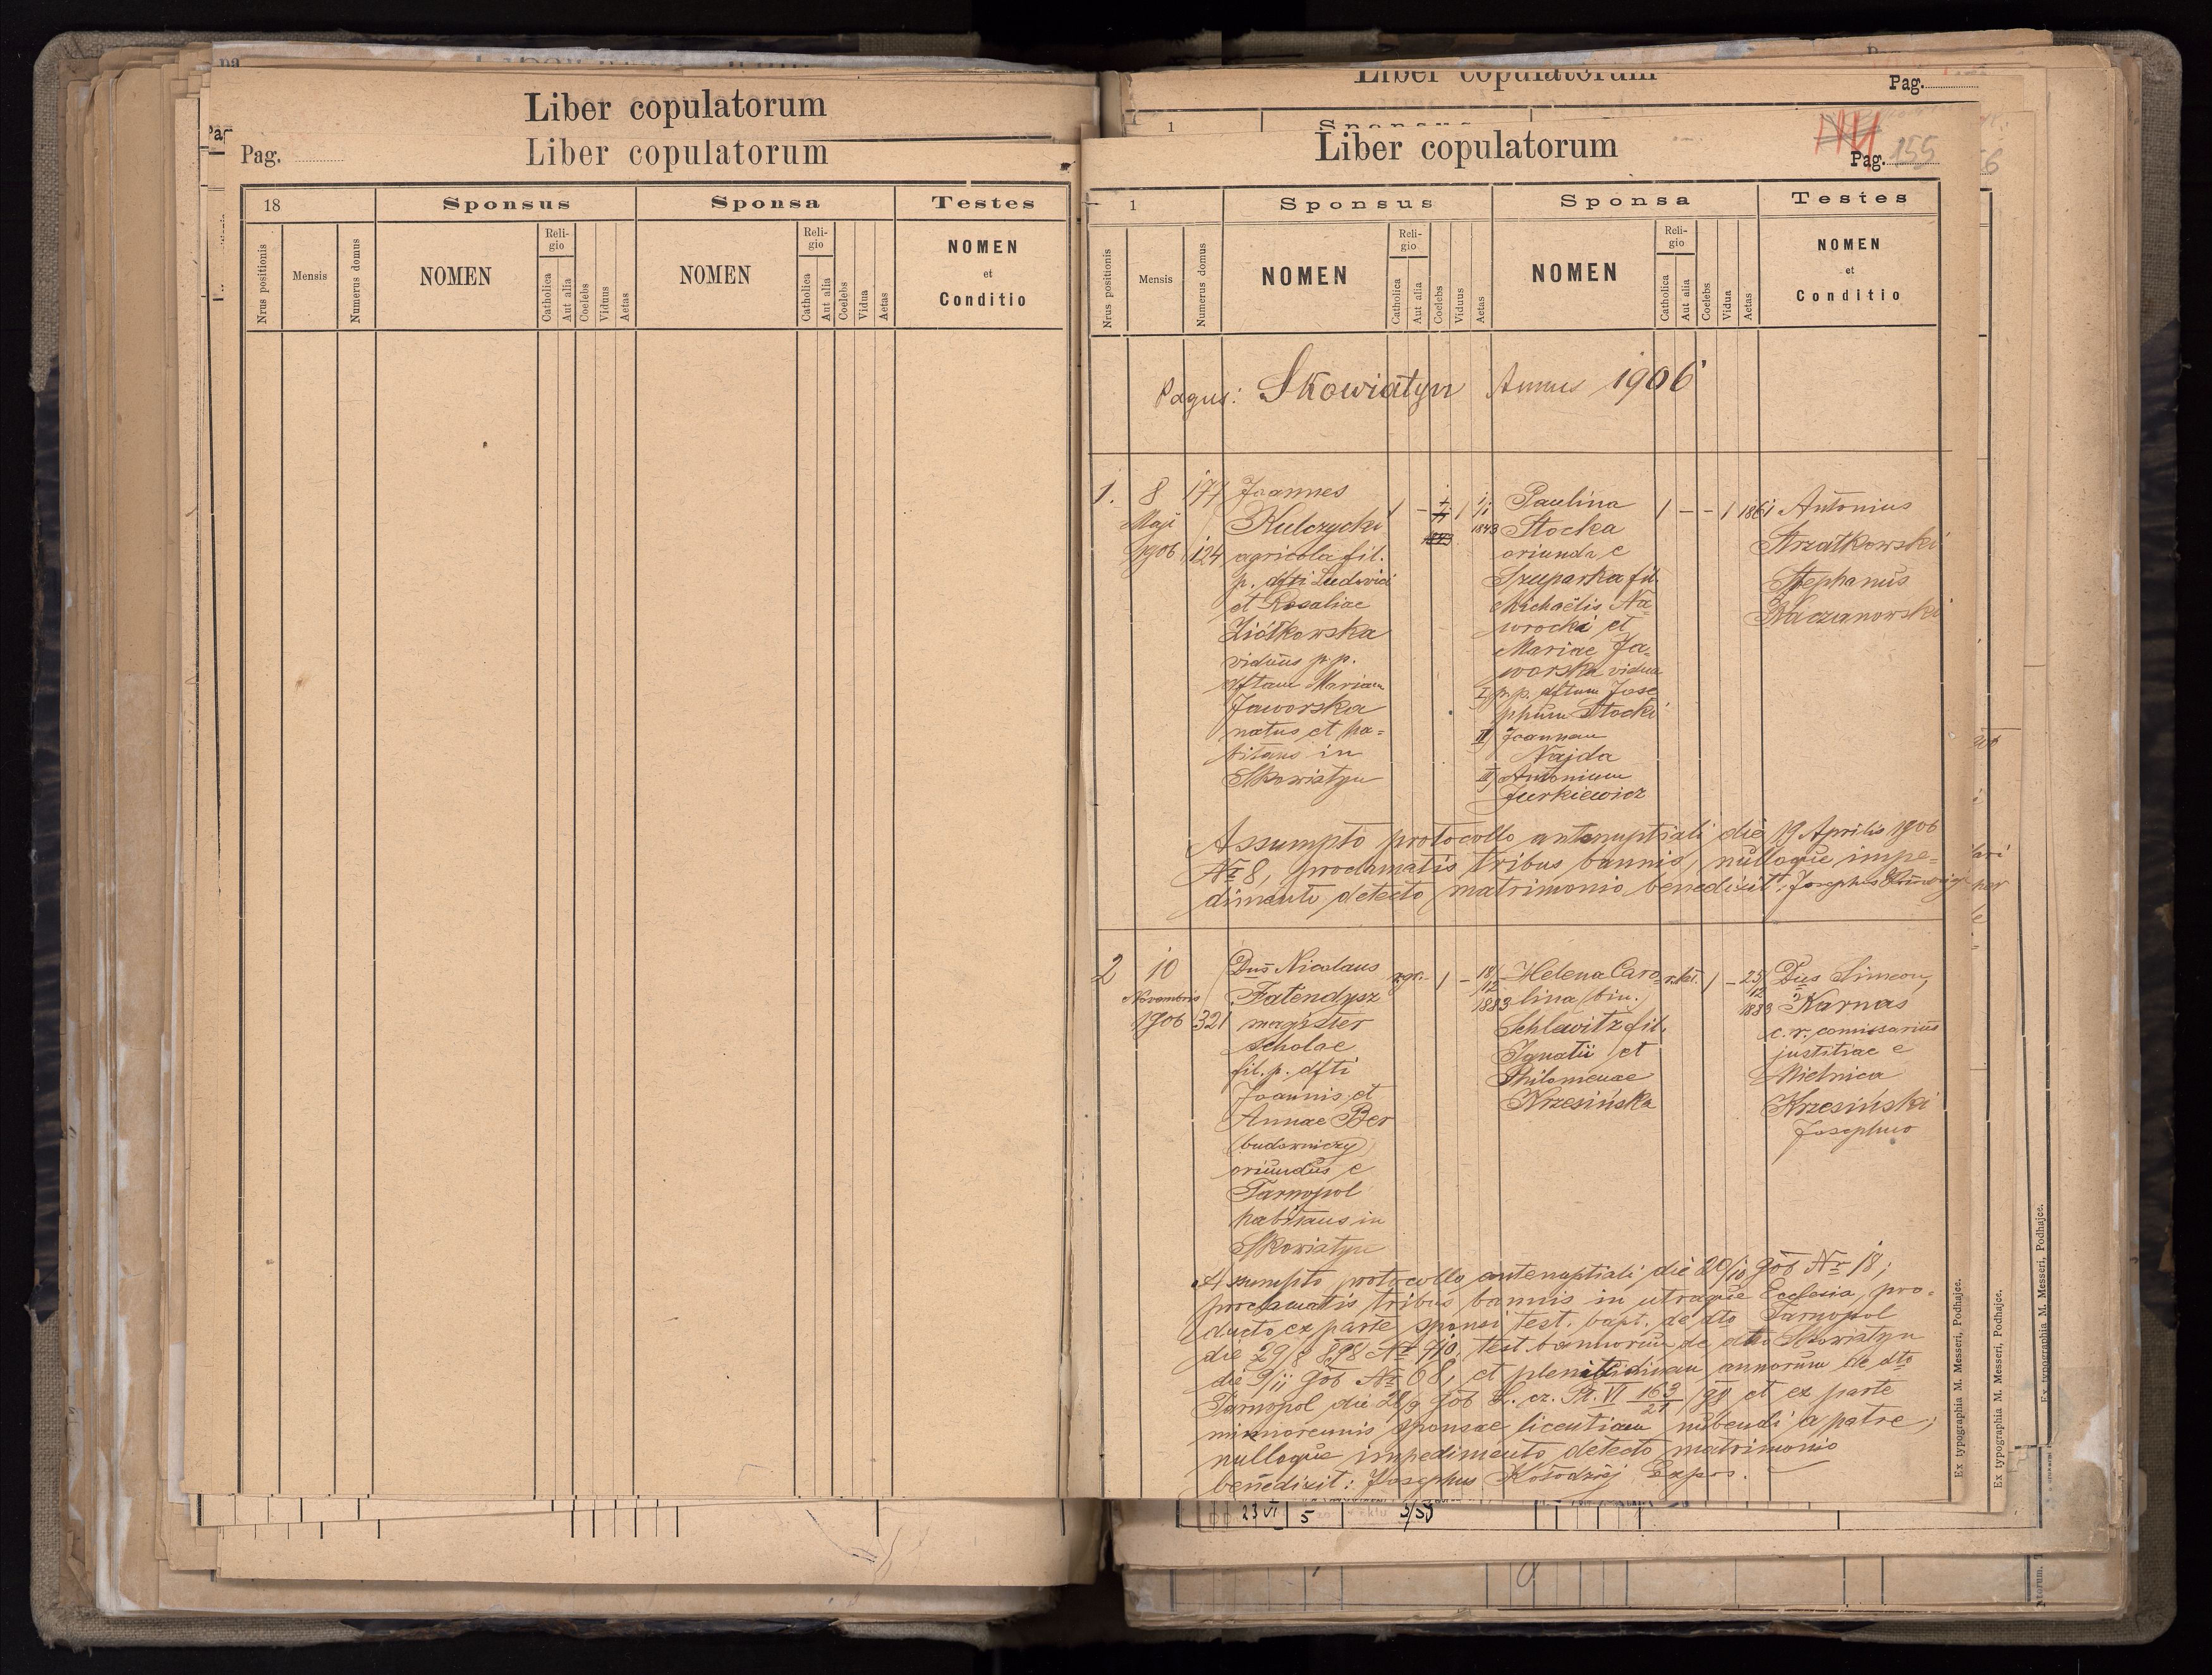 Liber copulatorum
Pag. Liber copulatorum
18 Sponsus Sponsa Testes
Nrus positionis Mensis Numerus domus NOMEN Religio Catholica Aut alia Coelebs Viduus Aetas NOMEN Religio Catholica Aut alia Coelebs Vidua Aetas NOMEN et Conditio
Liber copulatorum Pag.
Liber copulatorum
Pag. 155
1 Sponsus Sponsa Testes
Nrus positionis Mensis Numerus domus NOMEN Religio Catholica Aut alia Coelebs Viduus Aetas NOMEN Religio Catholica Aut alia Coelebs Vidua Aetas NOMEN et Conditio
Pagus: Skowiatyn Annus 1906
1. 8 Maji 1906
177 / 124
Joannes
Kulczycki
agricola fil.
p. dfti Ludovici
et Rosaliae
Ziółkowska
viduus p. p.
dftam Mariam
Jaworska
natus et ha=
bitans in
Skowiatyn
1 - 1 1843
Paulina
Stocka
oriunda e
Szuparka fil.
Michaëlis Na=
wrocki et
Mariae Ja=
worska vidua
I p. p. dftum Jose
phum Stocki
II Joannem
Najda
III Antonium
Jurkiewicz
1 - - 1 1861
Antonius
Strzałkowski
Stephanus
Kaczanowski
Assumpto protocollo antenuptiali die 19 Aprilis 1906
Nr 8, proclamatis tribus bannis, nulloque impe=
dimento detecto matrimonio benedixit: Josephus
2 10 Novembris 1906
321
Dus Nicolaus
Fatendysz
magister
scholae
fil. p. dfti
Joannis et
Annae Ber
(budowniczy)
oriundus e
Tarnopol
habitans in
Skowiatyn
r. gr. 1 - 18/12 1883
Helena Caro=
lina (bin.)
Schlewitz fil.
Ignatii et
Philomenae
Krzesińska
r. lat. 1 - 25/12 1883
Dus Simeon
Karnas
c. r. comissarius
justitiae e
Mielnica
Krzesiński
Josephus
Assumpto protocollo antenuptiali die 20/10 906 Nr 18;
proclamatis tribus bannis in utraque Ecclesia, pro=
ducto ex parte sponsi test. bapt. de dto Tarnopol
die 29/8 898 Nr 910, test. bannorum de dto Skowiatyn
die 9/11 906 Nr 68, et plenitudinem annorum de dto
Tarnopol die 28/9 906 L. cz. Pr. VI 163/21 /99 et ex parte
minorennis sponsae licentiam nubendi a patre;
nulloque impedimento detecto matrimonio
benedixit: Josephus Kołodziej Expos.
Ex typographia M. Messeri, Podhajce.
Ex typographia M. Messeri, Podhajce.
Ex typographia M. Messeri, Podhajce.
23 VI 5